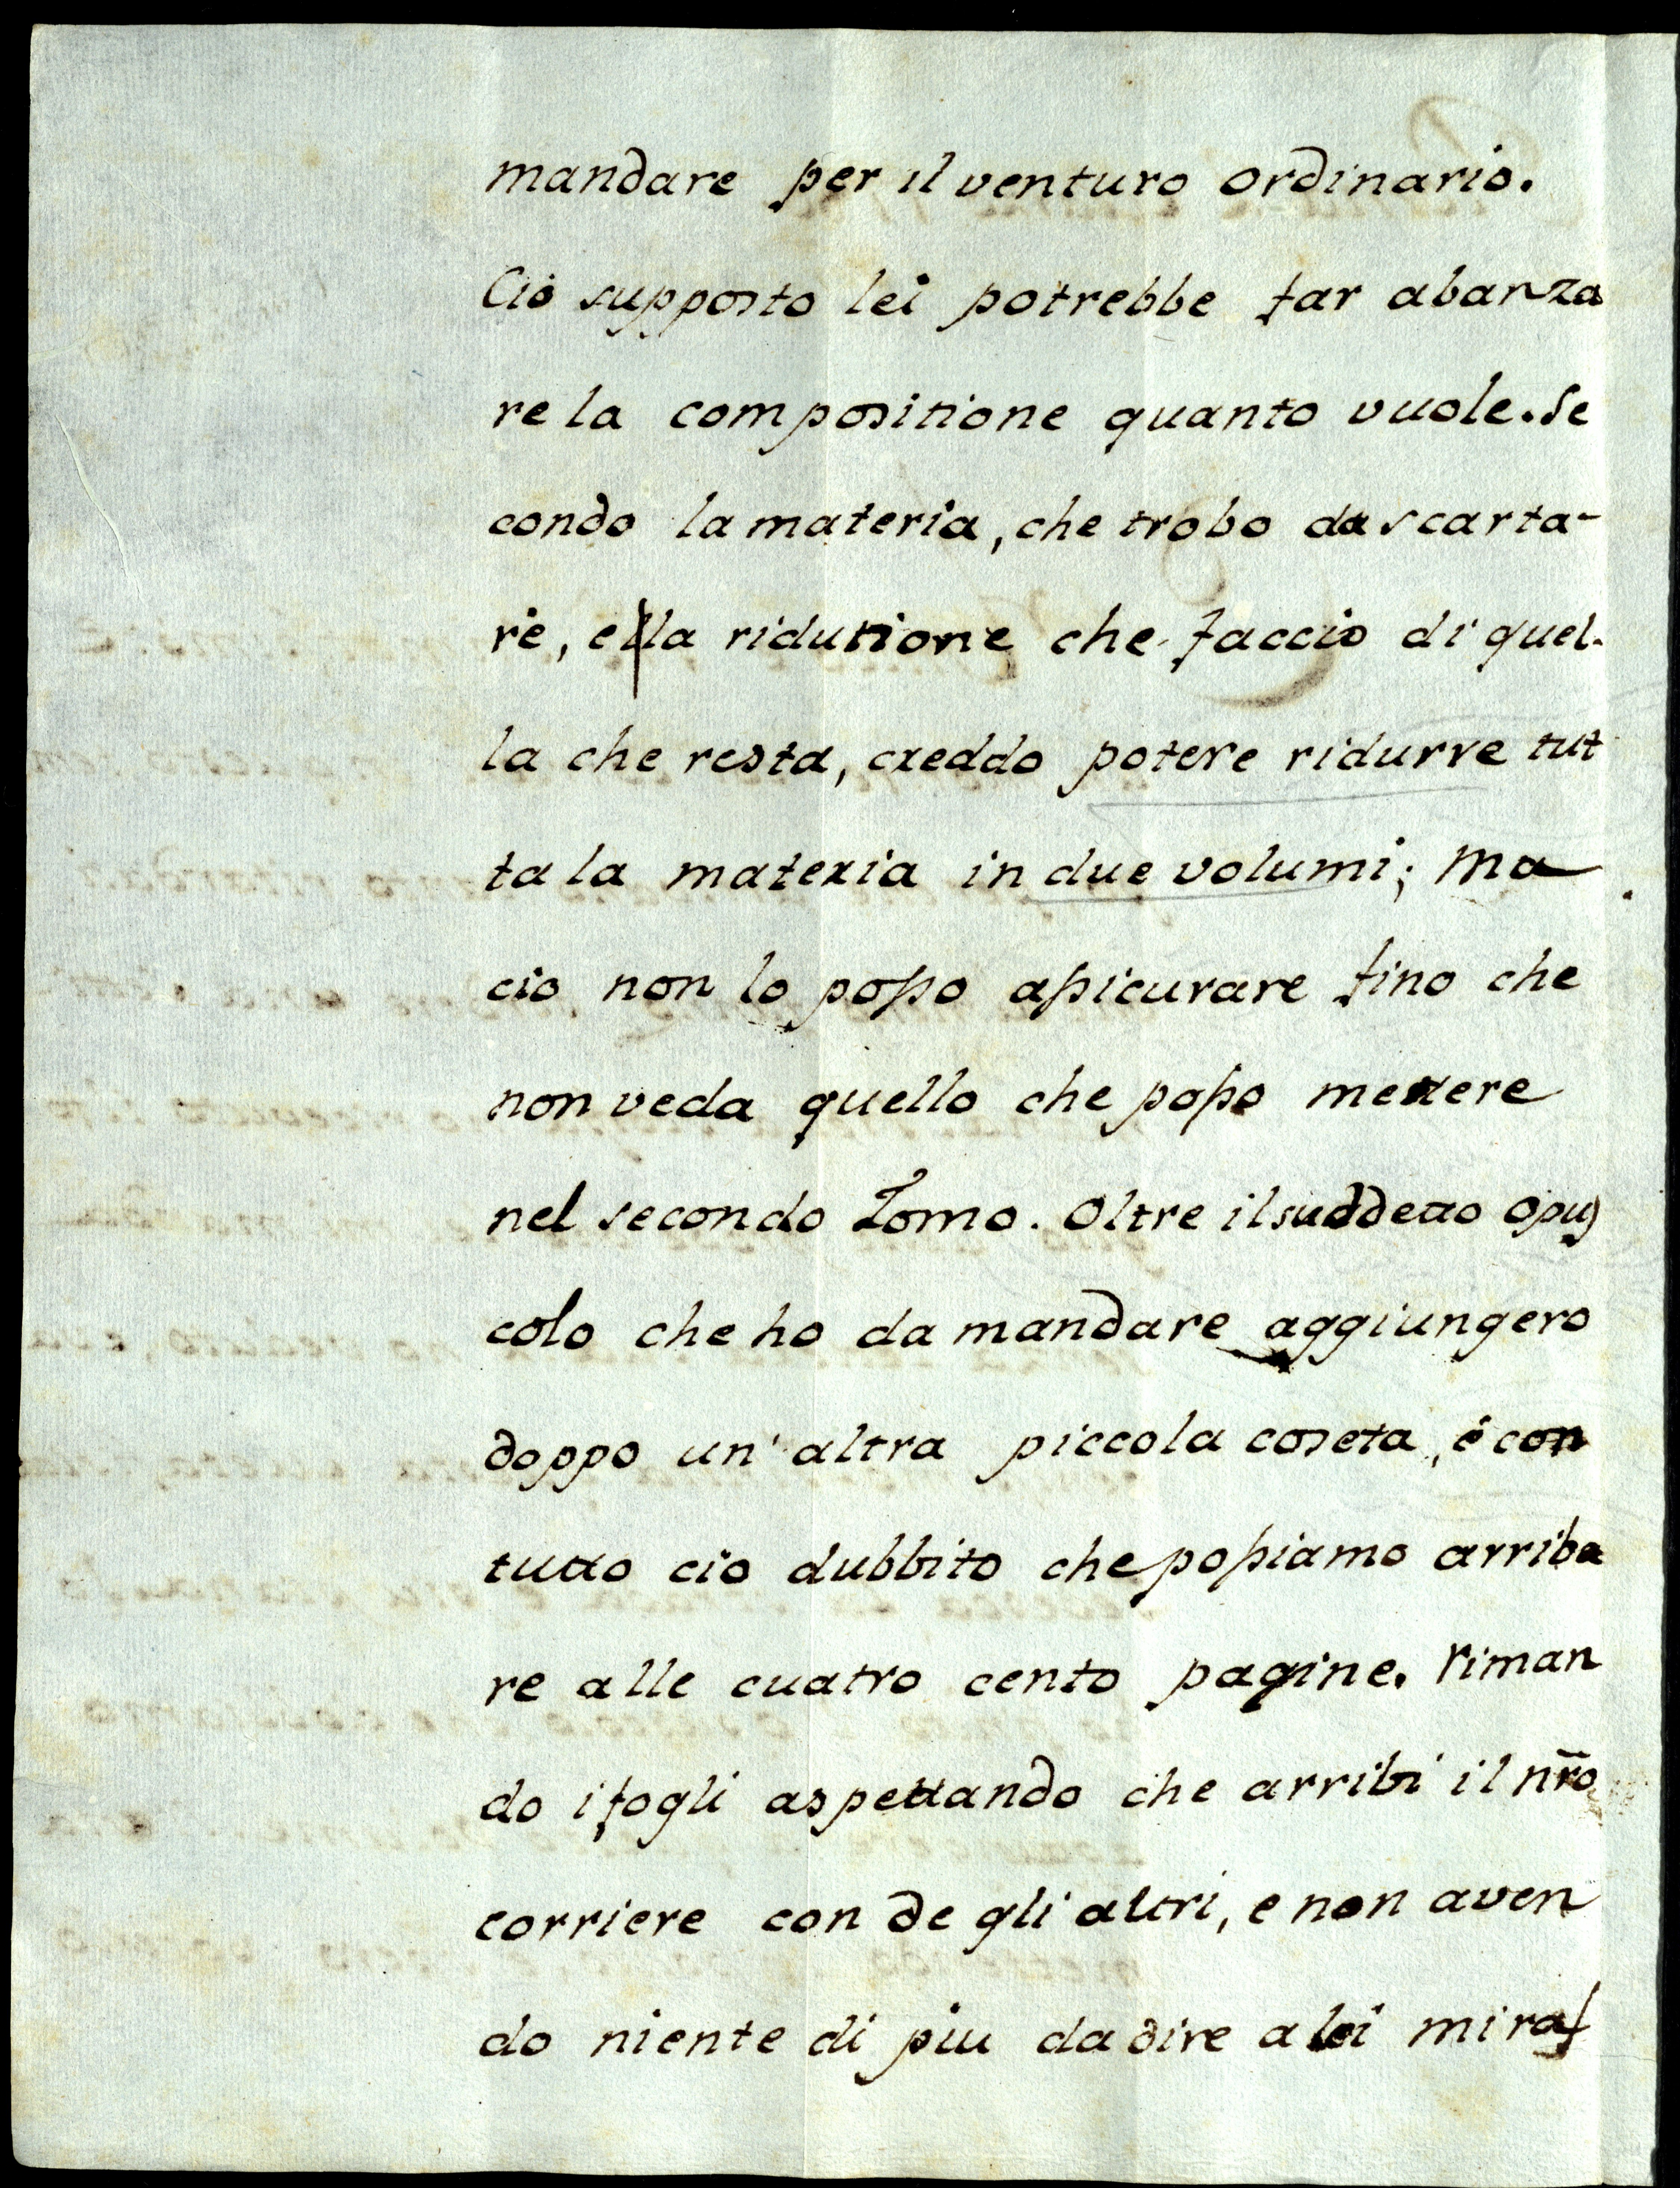 mandare per il venturo ordinario.
Ciò supposto lei potrebbe far abanza
re la compositione quanto vuole. Se
condo la materia, che trobo da scarta-
re, e la ridutione che faccio di quel-
la che resta, creddo potere ridurre tut
ta la materia in due volumi; ma
cio non lo posso assicurare fino che
non veda quello che posso mettere
nel secondo Tomo. Oltre il suddetto Opus
colo che ho da mandare aggiungero
doppo un' altra piccola coseta, é con
tutto cio dubbito che possiamo arriba
re alle cuatro cento pagine. Riman
do i fogli aspettando che arribi il nr̃o
corriere con de gli altri, e non aven
do niente di piu da dire a lei mi raf